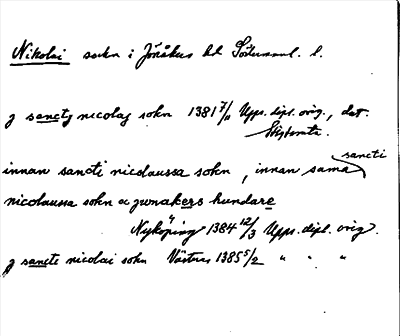 Nikolai sokn i Jönåkers hd Söderman. l.
j sanctj nicolaj sokn 1381 7/11 Upps. dipl. orig., dat.
innan sancti nicolaussa sokn, innan sama sancti
nicolaussa sokn a junakers hundare
Nyköping 1384 12/3 Upps. dipl. orig.
j sancte nicolai sokn Västra 1385 5/2 " " "